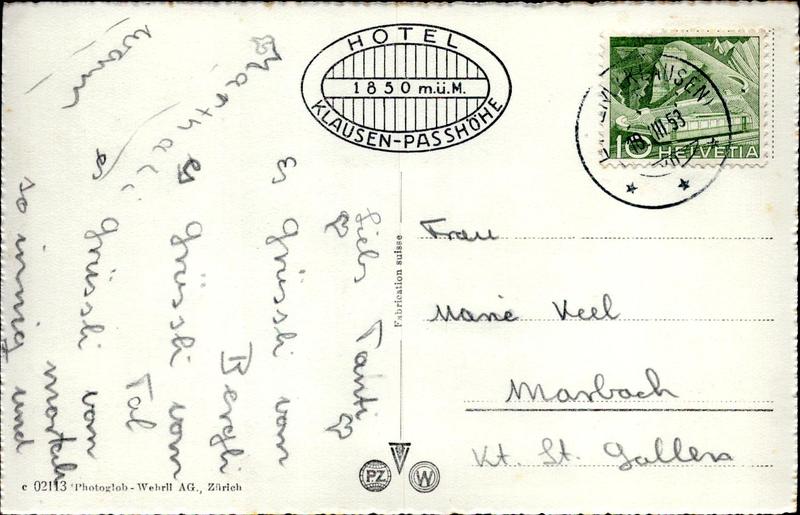 HOTEL
1850 m.ü.M.
KLAUSEN-PASSHÖHE
(KLAUSEN)
III.53
10 HELVETIA
Liebs Tanti
Es Grüssli vom
Bergli
es grüssli vom
Tal
es grüssli vom
so innig und
warm
Marthali
Fabrication suisse
Frau
Marie Keel
Marbach
Kt. St. Gallen
PZ
W
c 02113 Photoglob-Wehrli AG., Zürich